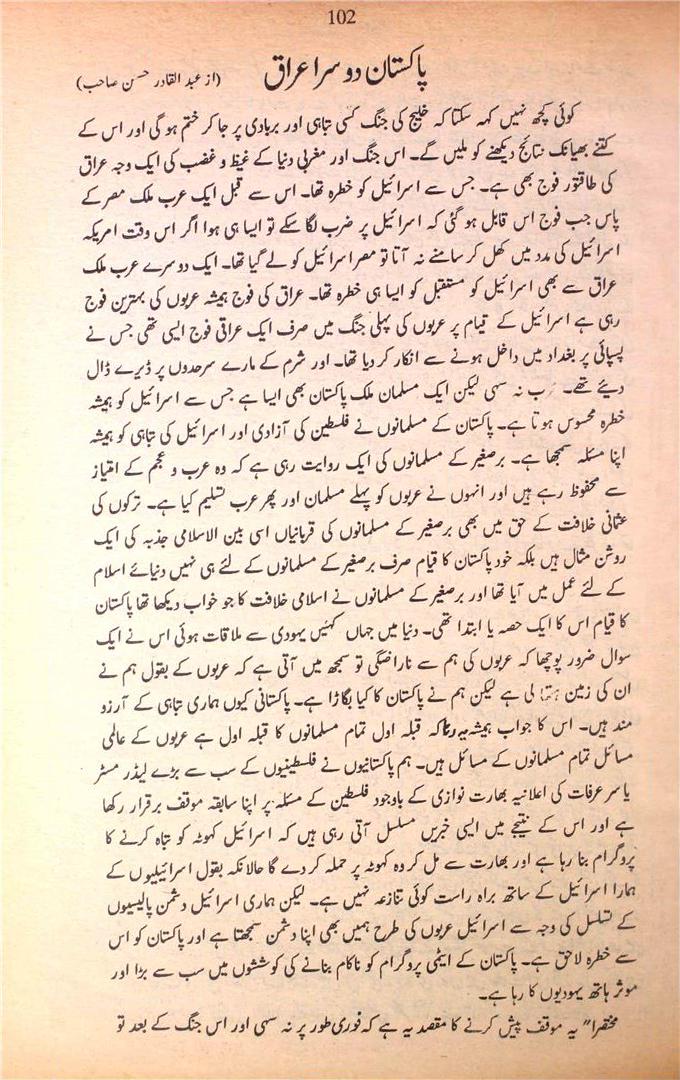 102
پاکستان دوسرا عراق
(از عبد القادر حسن صاحب)
کوئی کچھ نہیں کہہ سکتا کہ خلیج کی جنگ کسی تباہی اور بربادی پر جا کر ختم ہو گی اور اس کے
کتنے بھیانک نتائج دیکھنے کو ملیں گے۔ اس جنگ اور مغربی دنیا کے غیظ و غضب کی ایک وجہ عراق
کی طاقتور فوج بھی ہے۔ جس سے اسرائیل کو خطرہ تھا۔ اس سے قبل ایک عرب ملک مصر کے
پاس جب فوج اس قابل ہو گئی کہ اسرائیل پر ضرب لگا سکے تو ایسا ہی ہوا اگر اس وقت امریکہ
اسرائیل کی مدد میں کھل کر سامنے نہ آتا تو مصر اسرائیل کو لے گیا تھا۔ ایک دوسرے عرب ملک
عراق سے بھی اسرائیل کو مستقبل کو ایسا ہی خطرہ تھا۔ عراق کی فوج ہمیشہ عربوں کی بہترین فوج
رہی ہے اسرائیل کے قیام پر عربوں کی پہلی جنگ میں صرف ایک عراقی فوج ایسی تھی جس نے
پسپائی پر بغداد میں داخل ہونے سے انکار کر دیا تھا۔ اور شرم کے مارے سرحدوں پر ڈیرے ڈال
دیئے تھے۔ عرب نہ سہی لیکن ایک مسلمان ملک پاکستان بھی ایسا ہے جس سے اسرائیل کو ہمیشہ
خطرہ محسوس ہوتا ہے۔ پاکستان کے مسلمانوں نے فلسطین کی آزادی اور اسرائیل کی تباہی کو ہمیشہ
اپنا مسئلہ سمجھا ہے۔ برصغیر کے مسلمانوں کی ایک روایت رہی ہے کہ وہ عرب و عجم کے امتیاز
سے محفوظ رہے ہیں اور انہوں نے عربوں کو پہلے مسلمان اور پھر عرب تسلیم کیا ہے۔ ترکوں کی
عثمانی خلافت کے حق میں بھی برصغیر کے مسلمانوں کی قربانیاں اسی بین الاسلامی جذبہ کی ایک
روشن مثال ہیں بلکہ خود پاکستان کا قیام صرف برصغیر کے مسلمانوں کے لئے ہی نہیں دنیائے اسلام
کے لئے عمل میں آیا تھا اور برصغیر کے مسلمانوں نے اسلامی خلافت کا جو خواب دیکھا تھا پاکستان
کا قیام اس کا ایک حصہ یا ابتدا تھی۔ دنیا میں جہاں کہیں یہودی سے ملاقات ہوئی اس نے ایک
سوال ضرور پوچھا کہ عربوں کی ہم سے ناراضگی تو سمجھ میں آتی ہے کہ عربوں کے بقول ہم نے
ان کی زمین ہتھیا لی ہے لیکن ہم نے پاکستان کا کیا بگاڑا ہے۔ پاکستانی کیوں ہماری تباہی کے آرزو
مند ہیں۔ اس کا جواب ہمیشہ یہ رہا کہ قبلہ اول تمام مسلمانوں کا قبلہ اول ہے عربوں کے عالمی
مسائل تمام مسلمانوں کے مسائل ہیں۔ ہم پاکستانیوں نے فلسطینیوں کے سب سے بڑے لیڈر مسٹر
یاسر عرفات کی اعلانیہ بھارت نوازی کے باوجود فلسطین کے مسئلہ پر اپنا سابقہ موقف برقرار رکھا
ہے اور اس کے نتیجے میں ایسی خبریں مسلسل آتی رہی ہیں کہ اسرائیل کہوٹہ کو تباہ کرنے کا
پروگرام بنا رہا ہے اور بھارت سے مل کر وہ کہوٹہ پر حملہ کر دے گا حالانکہ بقول اسرائیلیوں کے
ہمارا اسرائیل کے ساتھ براہ راست کوئی تنازعہ نہیں ہے۔ لیکن ہماری اسرائیل دشمن پالیسیوں
کے تسلسل کی وجہ سے اسرائیل عربوں کی طرح ہمیں بھی اپنا دشمن سمجھتا ہے اور پاکستان کو اس
سے خطرہ لاحق ہے۔ پاکستان کے ایٹمی پروگرام کو ناکام بنانے کی کوششوں میں سب سے بڑا اور
موثر ہاتھ یہودیوں کا رہا ہے۔
مختصرا" یہ موقف پیش کرنے کا مقصد یہ ہے کہ فوری طور پر نہ سہی اور اس جنگ کے بعد تو